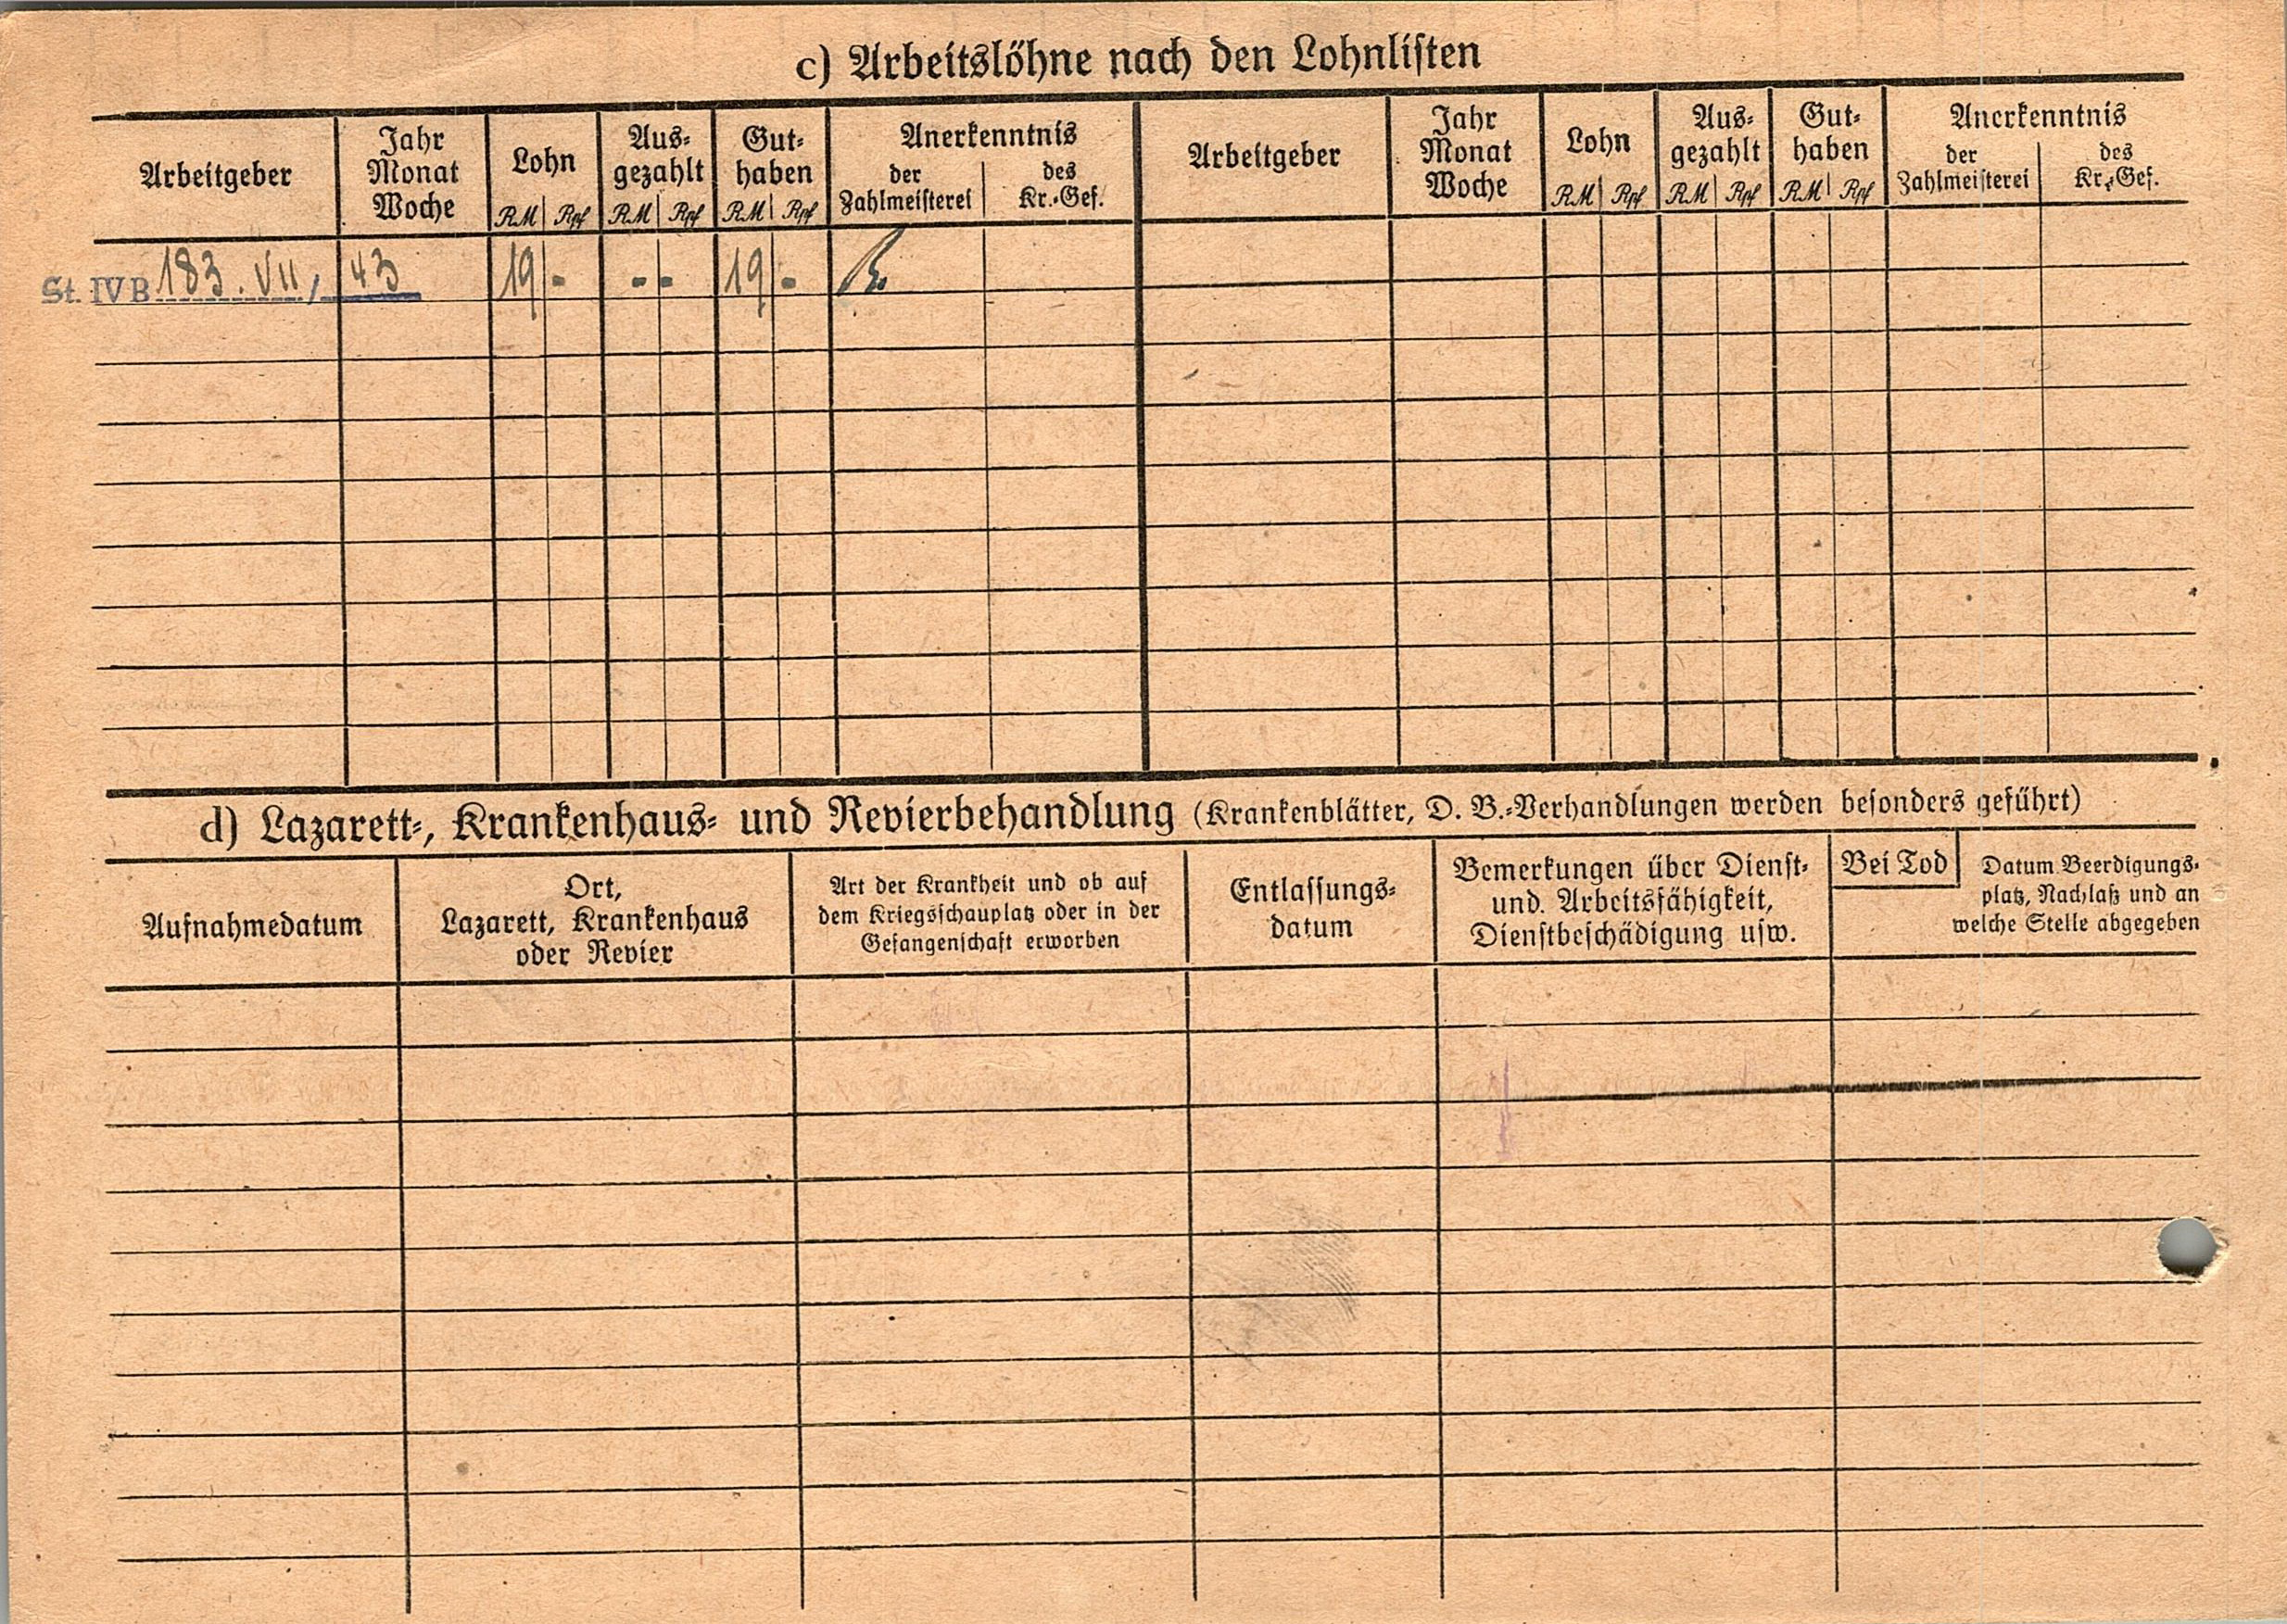 c) Arbeitslöhne nach den Lohnlisten
Arbeitgeber
Jahr
Monat
Woche
Lohn
RM Rpf
Aus-
gezahlt
RM Rpf
Gut-
haben
RM Rpf
Anerkenntnis
der
Zahlmeisterei
des
Kr.-Gef.
Arbeitgeber
Jahr
Monat
Woche
Lohn
RM Rpf
Aus-
gezahlt
RM Rpf
Gut-
haben
RM Rpf
Anerkenntnis
der
Zahlmeisterei
des
Kr.-Gef.
St. IVB 183. VII, 43 19 - - - 19 -
d) Lazarett-, Krankenhaus- und Revierbehandlung (Krankenblätter, D. B.-Verhandlungen werden besonders geführt)
Aufnahmedatum
Ort,
Lazarett, Krankenhaus
oder Revier
Art der Krankheit und ob auf
dem Kriegsschauplatz oder in der
Gefangenschaft erworben
Entlassungs-
datum
Bemerkungen über Dienst-
und. Arbeitsfähigkeit,
Dienstbeschädigung usw.
Bei Tod
Datum Beerdigungs-
platz, Nachlaß und an
welche Stelle abgegeben